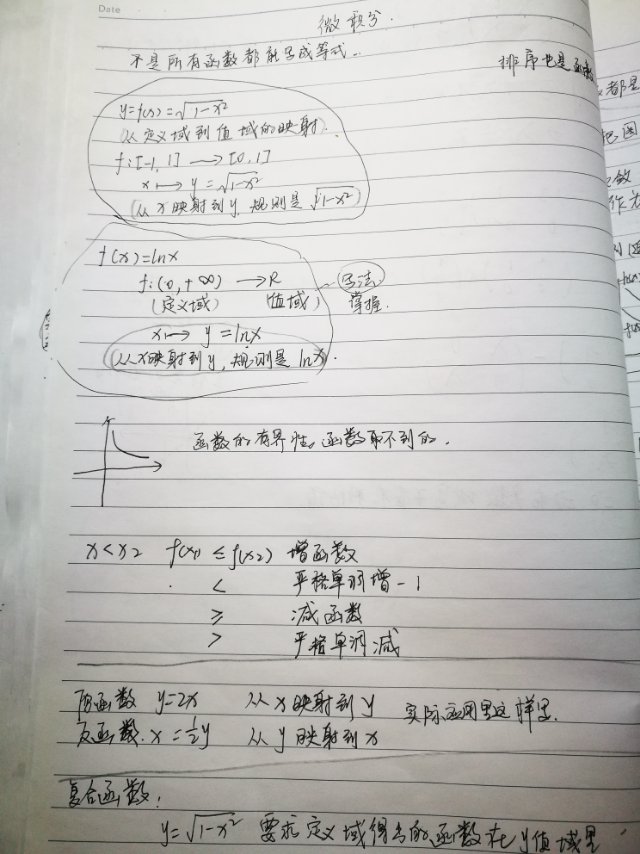 Date
微积分.
不是所有函数都能写成等式..
排序也是函数
y=f(x)=√1-x²
从定义域到值域的映射.
f:[-1,1]→[0,1]
x↦y=√1-x²
(从x映射到y,规则是√1-x²)
f(x)=lnx
f:(0,+∞)→R 写法
(定义域) (值域) 掌握.
x↦y=lnx
(从x映射到y,规则是lnx).
函数的有界性。函数取不到的.
x<x2 f(x) ≤f(x2) 增函数
< 严格单调增-1
≥ 减函数
> 严格单调减
原函数 y=2x 从x映射到y
反函数.x=½y 从y映射到x
复合函数:
y=√1-x² 要求定义域得出的函数在y值域里